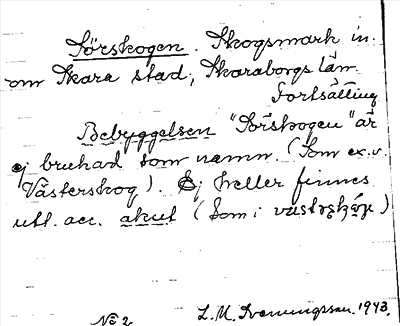 Sörskogen. Skogsmark in-
om Skara stad, Skaraborgs län.
Fortsättning
Bebyggelsen "Sörskogen" är
ej brukad som namn. (Som ex.v.
Västerskog). Ej heller finnes
utt. acc. akut (som i
No 2 L. M. Svenungsson. 1943.